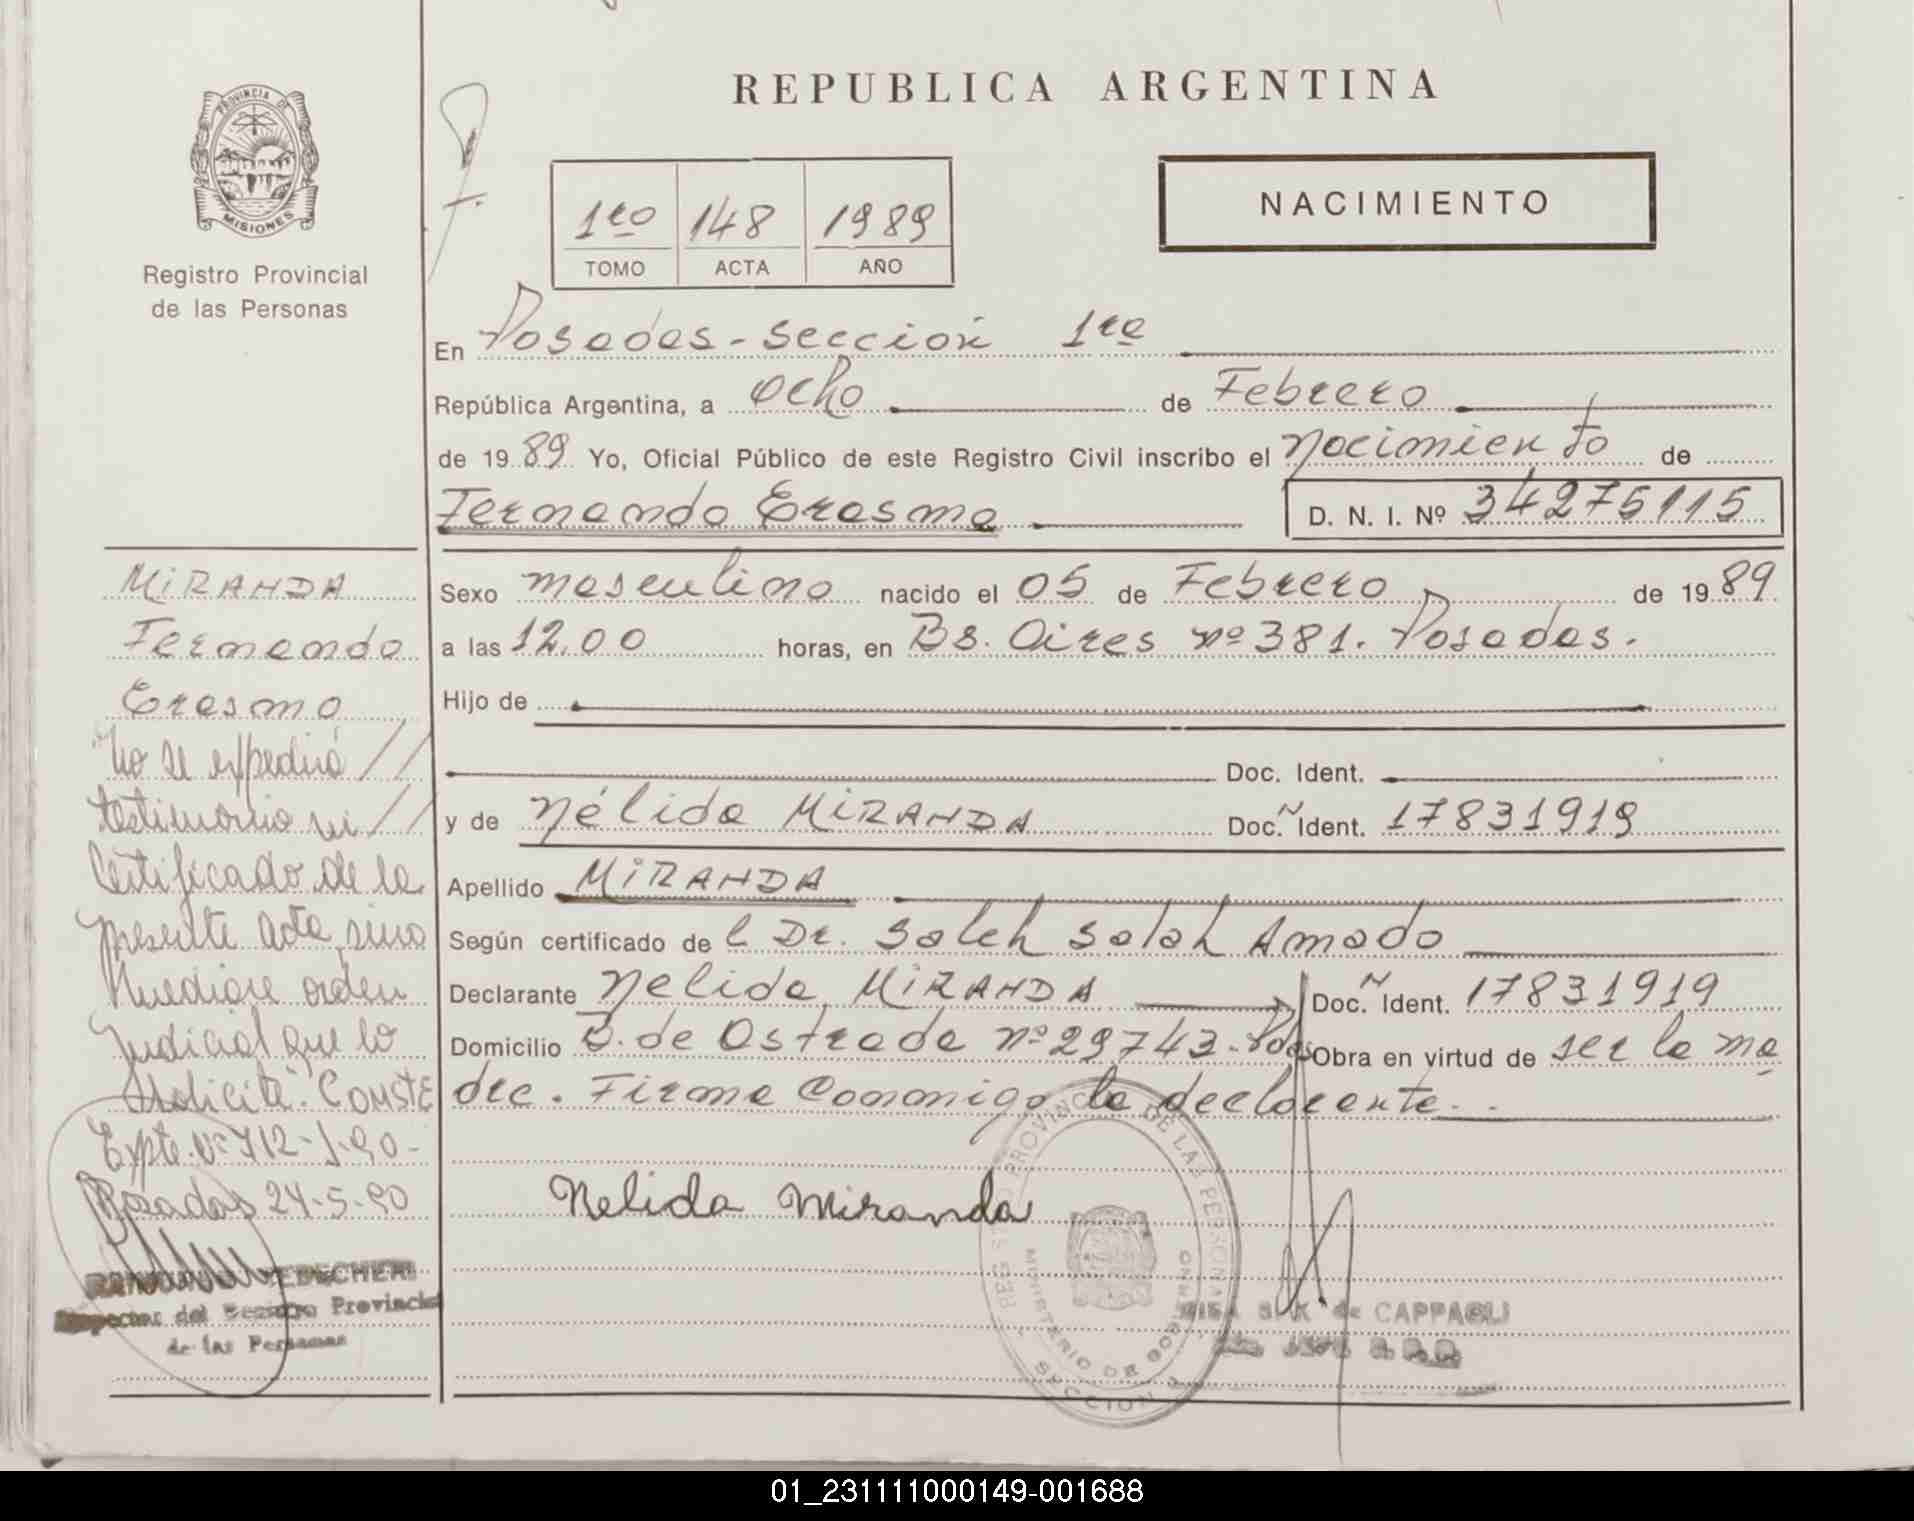 REPUBLICA ARGENTINA
PROVINCIA DE
MISIONES
Registro Provincial
de las Personas
1ro 148 1989
TOMO ACTA AÑO
NACIMIENTO
En Posadas - sección 1ra
República Argentina, a ocho de Febrero
de 1989 Yo, Oficial Público de este Registro Civil inscribo el nacimiento de
Fernando Erasmo D. N. I. Nº 34275115
Sexo masculino nacido el 05 de Febrero de 1989
a las 12.00 horas, en Bs. Aires nº 381. Posadas.
Hijo de
Doc. Ident.
y de Nélida MIRANDA Doc. N Ident. 17831919
Apellido MIRANDA
Según certificado de l Dr. Saleh Salah Amado
Declarante Nelida MIRANDA Doc. N Ident. 17831919
Domicilio B. de Ostrada nº 29743. Pdas Obra en virtud de ser la ma
dre. Firma Conmigo la declarante.
Nelida Miranda
MIRANDA
Fernando
Erasmo
"No se expedirá //
testimonio ni //
Certificado de la
presente acta, sino
Mediare orden
Judicial que lo
solicite". CONSTE
Expte. Nº 712-J-90-
Posadas 24-5-90
Inspector del Registro Provincial
de las Personas
PROVINCIAL DE LAS PERSONAS
MINISTERIO DE GOBIERNO
SECCION
de CAPPAGLI
01_231111000149-001688